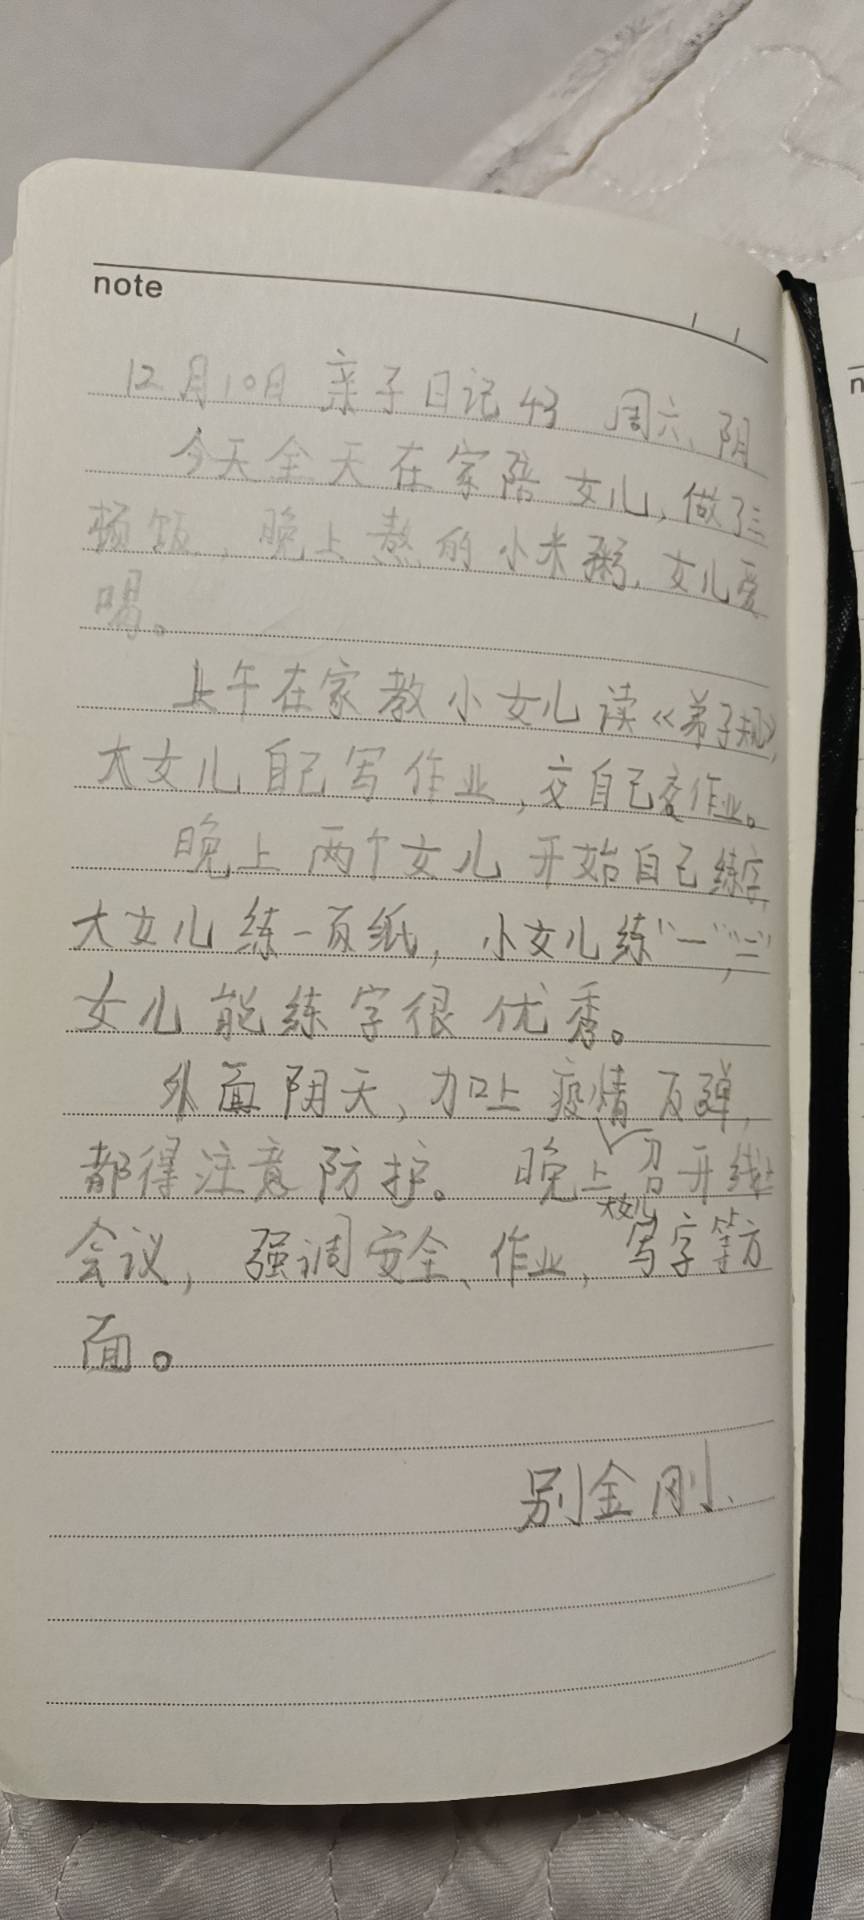 note
12月10日 亲子日记43 周六、阴
今天全天在家陪女儿，做了三
顿饭，晚上熬的小米粥，女儿爱
喝。
上午在家教小女儿读《弟子规》，
大女儿自己写作业，交自己作业。
晚上两个女儿开始自己练字，
大女儿练一页纸，小女儿练“一”，“二”
女儿能练字很优秀。
外面阴天、加上疫情反弹，
都得注意防护。晚上大女儿召开线上
会议，强调安全、作业，写字等方
面。
别金刚、
n